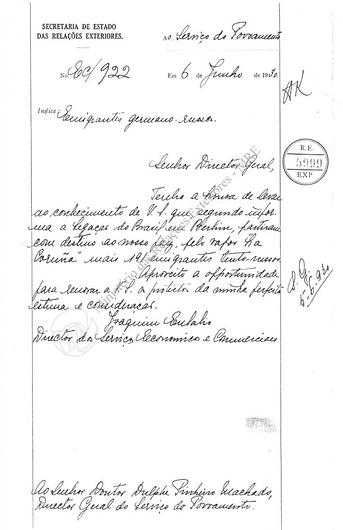 SECRETARIA DE ESTADO
DAS RELAÇÕES EXTERIORES.
Ao Serviço do Povoamento
No. EC/922
Em 6 de Junho de 1930.
Indice: Emigrantes germano-russos.
AK
Senhor Director Geral,
R.E.
5999
EXP
Tenho a honra de levar
ao conhecimento de V.S. que, segundo infor-
ma a Legação do Brasil em Berlim, partiram
com destino ao nosso paiz, pelo vapor "La
Coruña" mais 191 emigrantes teuto-russos.
Aproveito a opportunidade
para renovar a V.S. os protestos da minha perfeita
estima e consideração.
Joaquim Eulalio
Director dos Serviços Economicos e Commerciaes
Ao Senhor Doutor Dulphe Pinheiro Machado,
Director Geral do Serviço do Povoamento.